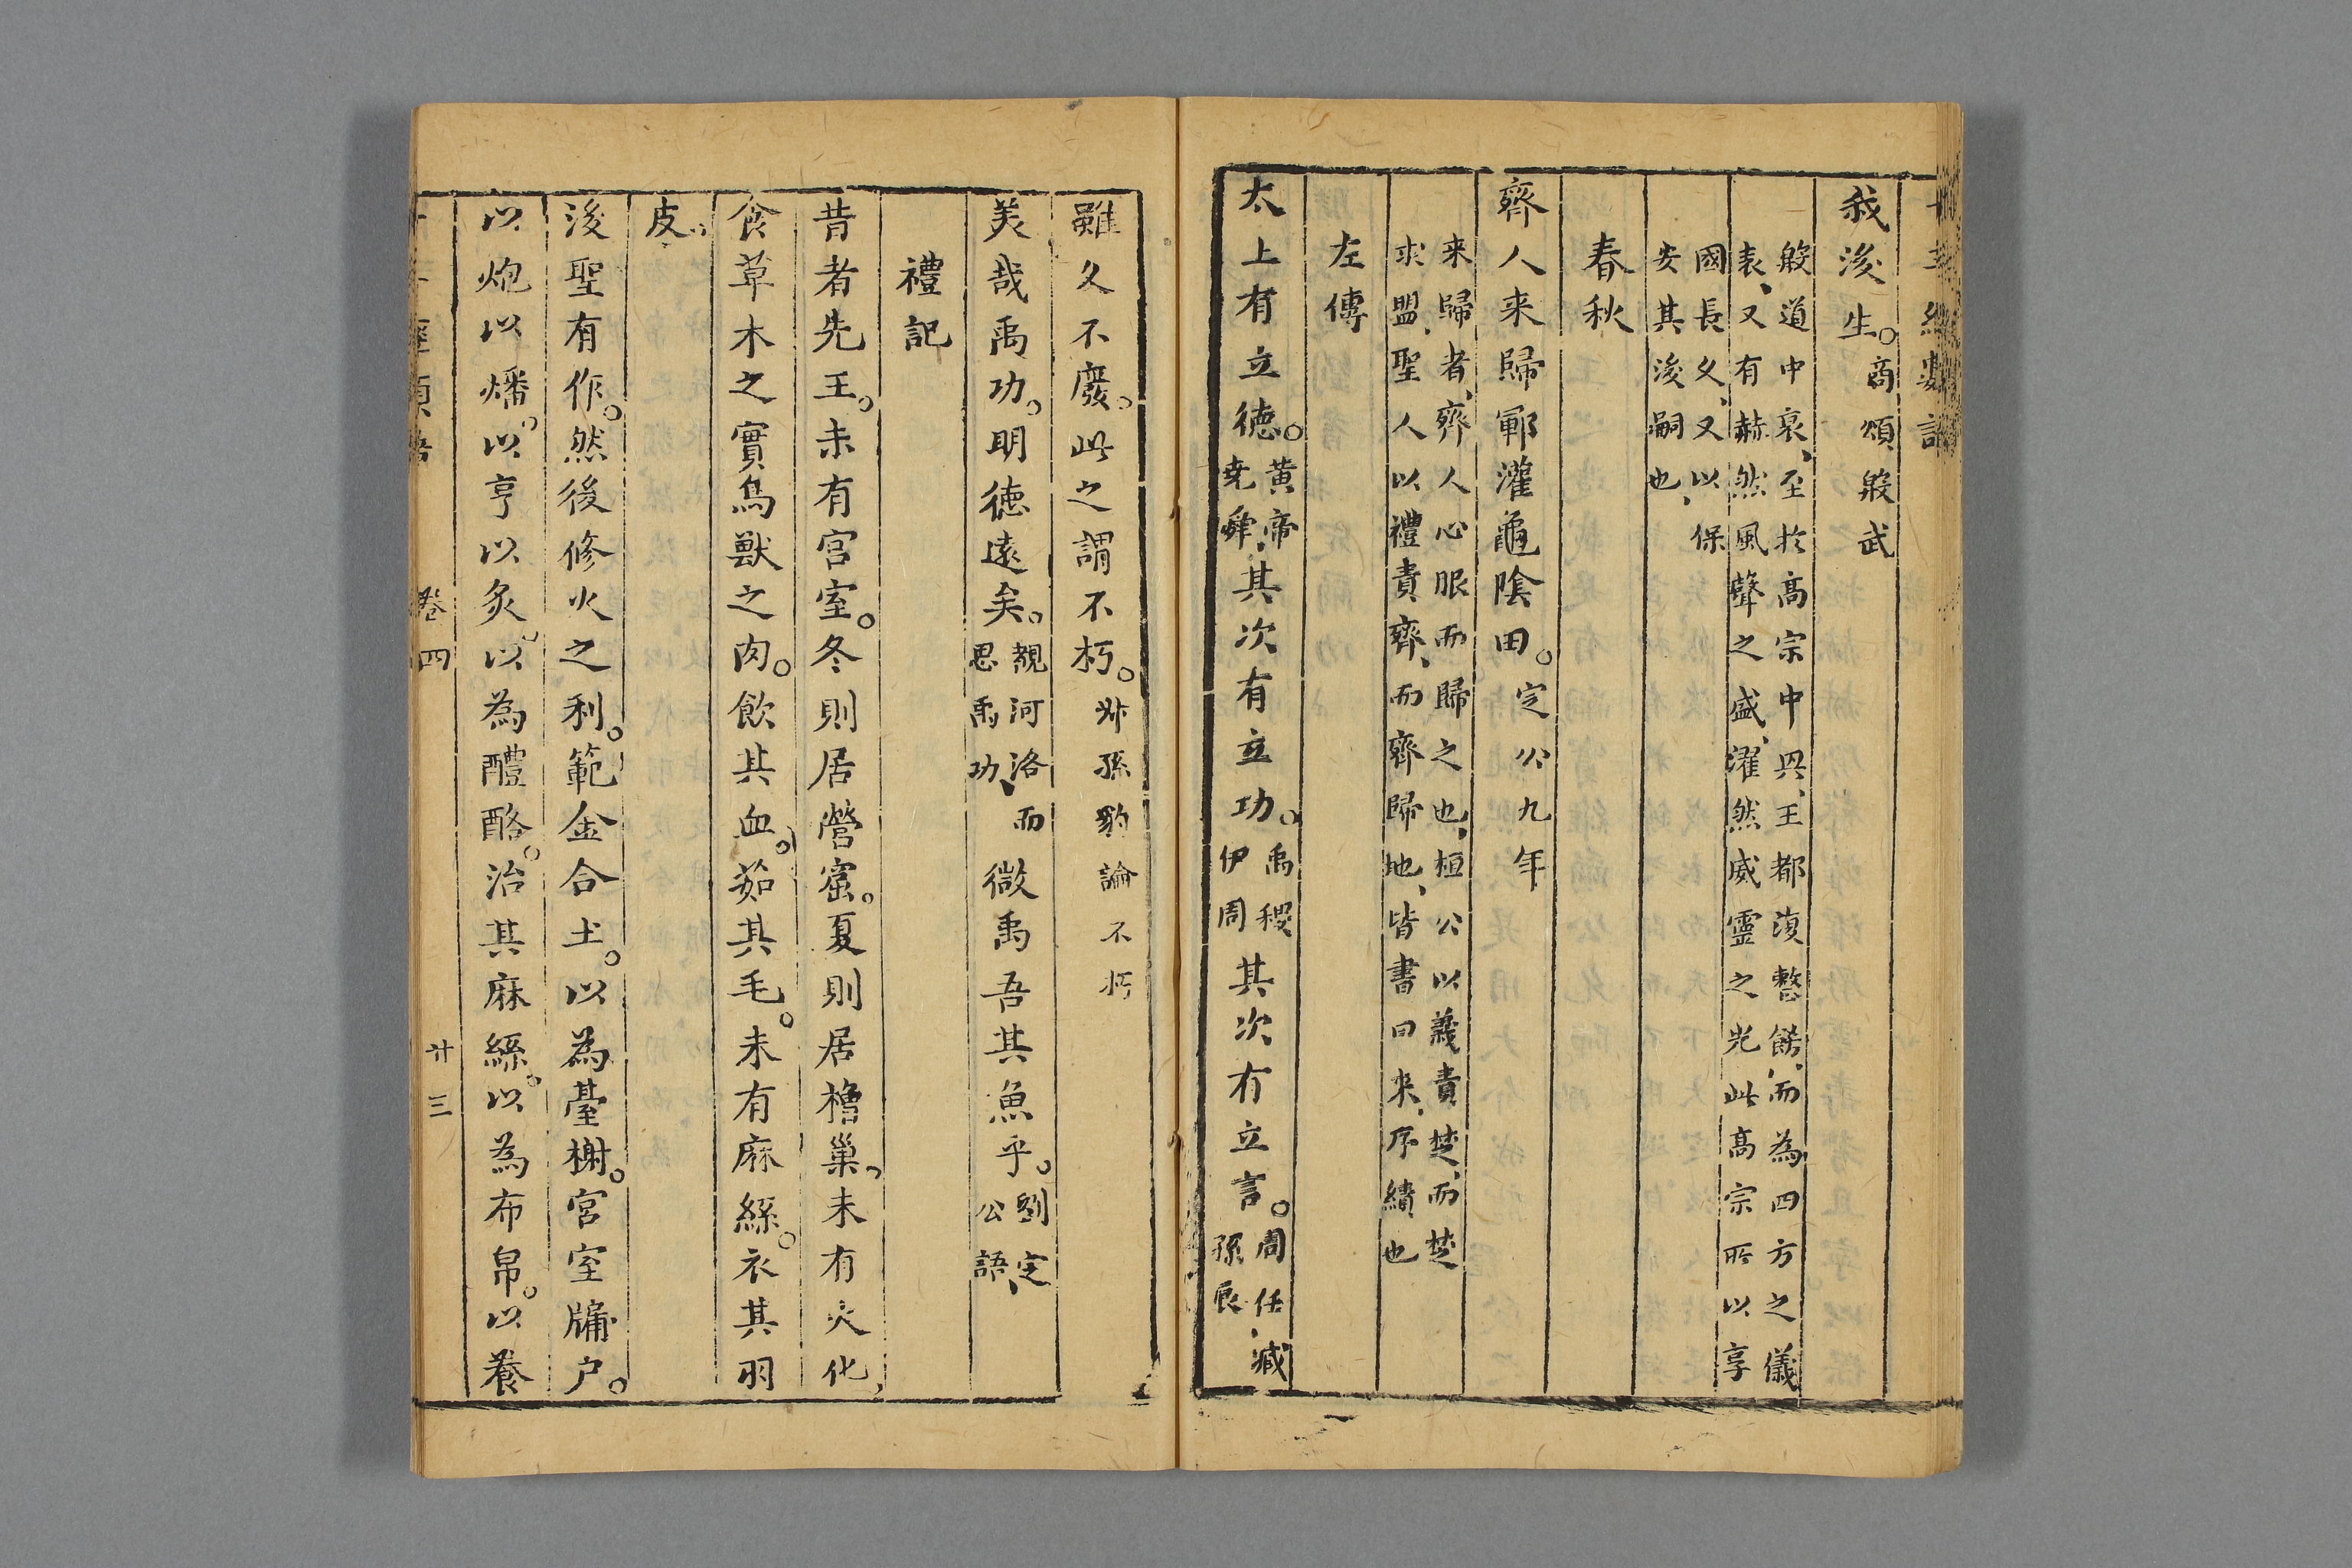 我後生。商頌殷武
殷道中衰、至於高宗中興、王都復整飭、而為四方之儀
表、又有赫然風聲之盛、濯然威靈之光此高宗所以享
國長久、又以保
安其後嗣也、
春秋
齊人来歸鄆灌龜陰田。定公九年
来歸者、齊人心服而歸之也、桓公以義責楚、而楚
求盟、聖人以禮責齊、而齊歸地、皆書曰来、序績也
左傳
太上有立德。黄帝堯舜、其次有立功。禹稷伊周其次有立言。周任、臧孫辰
雖久不廢。此之謂不朽。叔孫豹論不朽
美哉禹功。明德遠矣。覩河洛而思禹功、微禹吾其魚乎。劉定公語、
禮記
昔者先王。未有宮室。冬則居營窟。夏則居橧巢。未有火化、
食草木之實鳥獸之肉。飲其血。茹其毛。未有麻絲。衣其羽
皮。
後聖有作。然後修火之利。範金合土。以為臺榭。宮室牖户。
以炮以燔。以亨以炙。以為醴酪。治其麻絲。以為布帛。以養
卷四
廿三